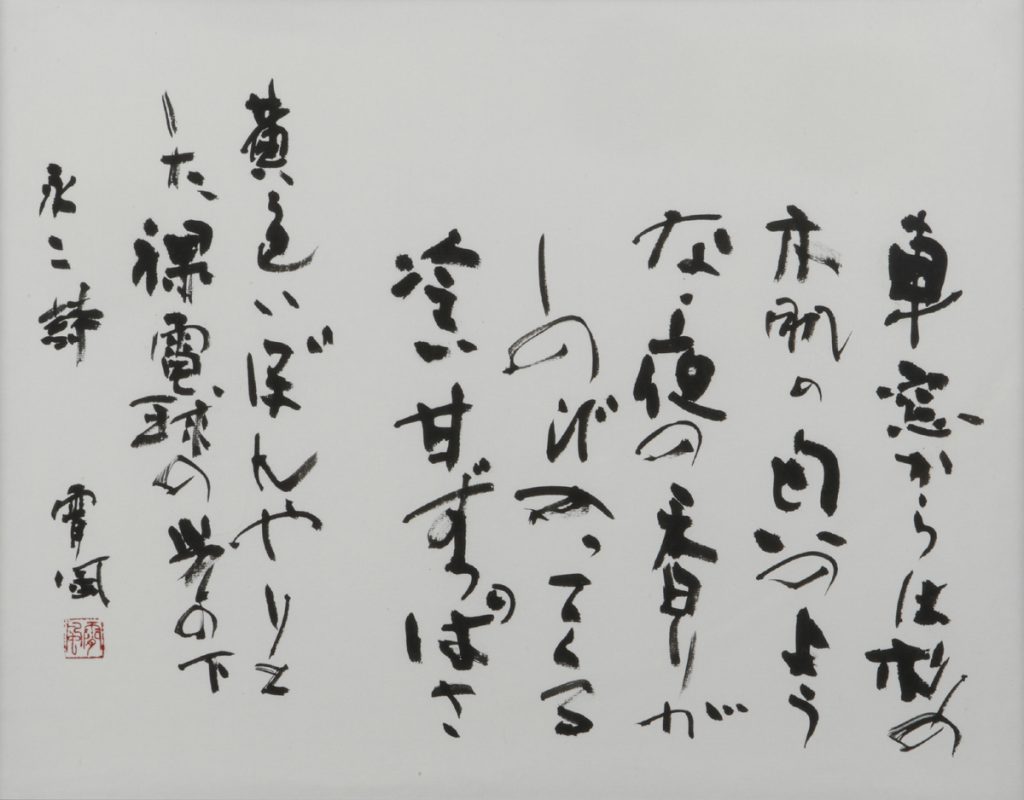 車窓からは杉の
木肌の匂いのよう
な、夜の香りが
しのびやってくる
冷い甘ずっぱさ
黄色いぼんやりと
した裸電球の光の下
永二詩 霄風